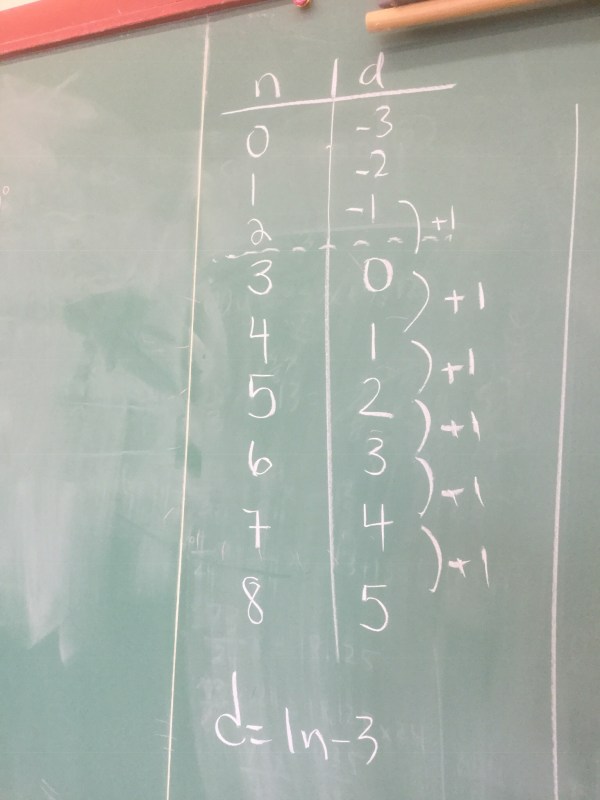 n d
0 -3
1 -2
2 -1
+1
3 0
+1
4 1
+1
5 2
+1
6 3
+1
7 4
+1
8 5
d=1n-3